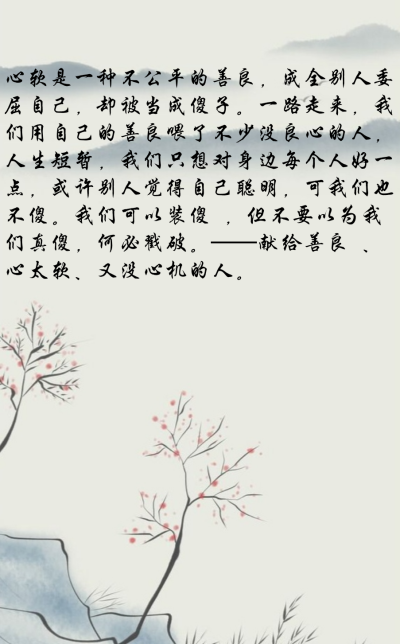 心软是一种不公平的善良，成全别人委
屈自己，却被当成傻子。一路走来，我
们用自己的善良喂了不少没良心的人，
人生短暂，我们只想对身边每个人好一
点，或许别人觉得自己聪明，可我们也
不傻。我们可以装傻 ，但不要以为我
们真傻，何必戳破。——献给善良 、
心太软、又没心机的人。